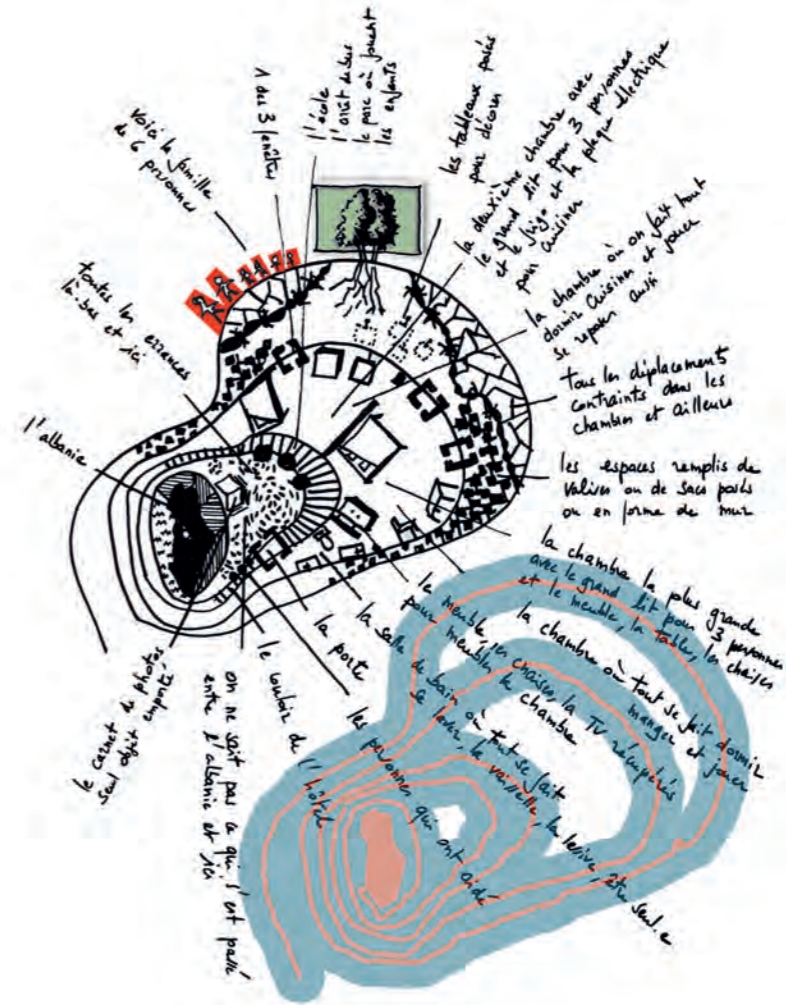 voici la famille
de 6 personnes
1 des 3 fenêtres
l'école
l'arrêt de bus
le parc où jouent
les enfants
les tableaux posés
pour décorer
la deuxième chambre avec
le grand lit pour 3 personnes
et le frigo et la plaque électrique
pour cuisiner
la chambre où on fait tout
dormir cuisiner et jouer
se reposer aussi
tous les déplacements
contraints dans les
chambres et ailleurs
les espaces remplis de
valises ou de sacs posés
ou en forme de mur
la chambre la plus grande
avec le grand lit pour 3 personnes
et le meuble, la table, les chaises
la chambre où tout se fait dormir
manger et jouer
le meuble, les chaises, la TV récupérés
pour meubler la chambre
la salle de bain où tout se fait
se laver, la vaisselle, la lessive, être seul.e
la porte
les personnes qui ont aidé
le couloir de l'hôtel
on ne sait pas ce qui s'est passé
entre l'albanie et ici
le carnet de photos
seul objet emporté
l'albanie
toutes les errances
là-bas et ici